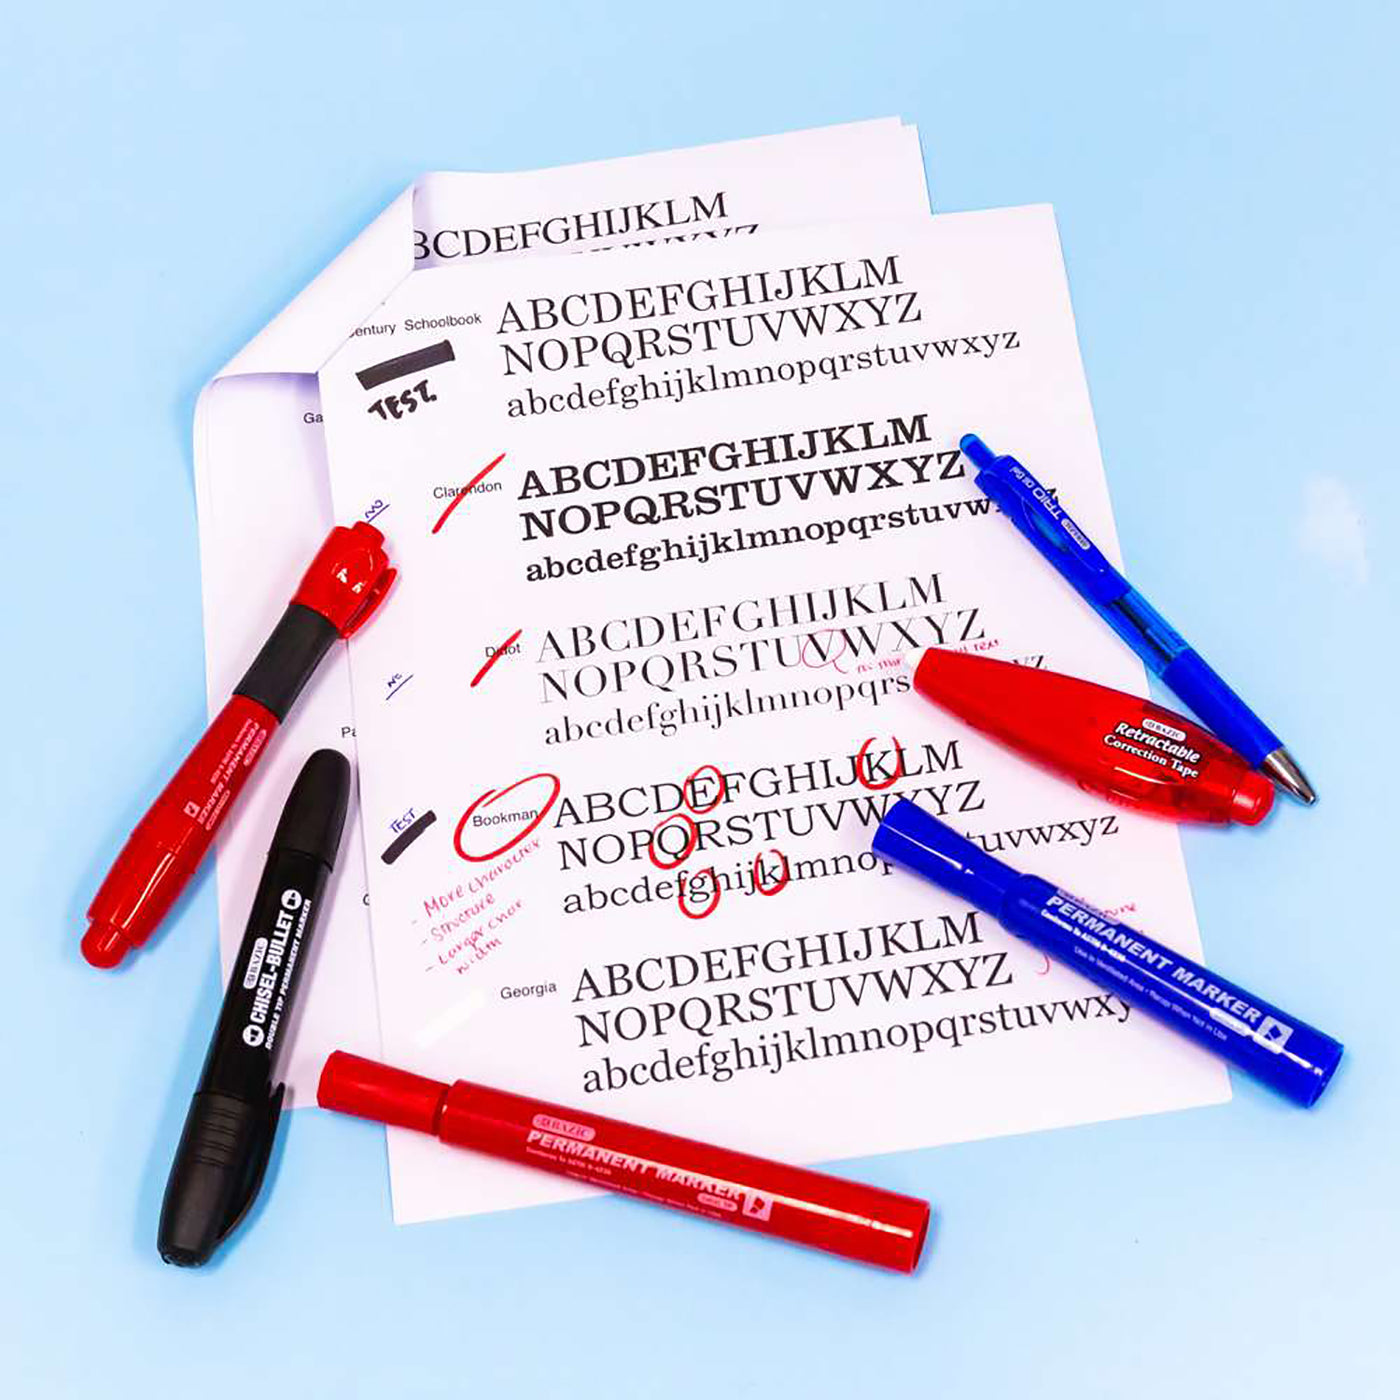 BCDEFGHIJKLM
entury Schoolbook
ABCDEFGHIJKLM
NOPQRSTUVWXYZ
abcdefghijklmnopqrstuvwxyz
TEST.
Ga
Clarendon
ABCDEFGHIJKLM
NOPQRSTUVWXYZ
abcdefghijklmnopqrstuvw
NO
Didot
ABCDEFGHIJKLM
NOPQRSTUVWXYZ
abcdefghijklmnopqrs
yz
NO
Pa
TEST
Bookman
ABCDEFGHIJKLM
NOPQRSTUVWXYZ
abcdefghijklmnop
uvwxyz
- More character
- Structure
- Larger char
width
Georgia
ABCDEFGHIJKLM
NOPQRSTUVWXYZ
abcdefghijklmnopqrstuvwxy
TRIO Oil Gel
BAZIC
BAZIC
Retractable
Correction Tape
PERMANENT MARKER
Conforms To ASTM D-4236
Use in Ventilated Area • Recap When Not in Use
BAZIC
PERMANENT MARKER
BAZIC
CHISEL-BULLET
DOUBLE TIP PERMANENT MARKER
BAZIC
PERMANENT MARKER
Conforms To ASTM D-4236